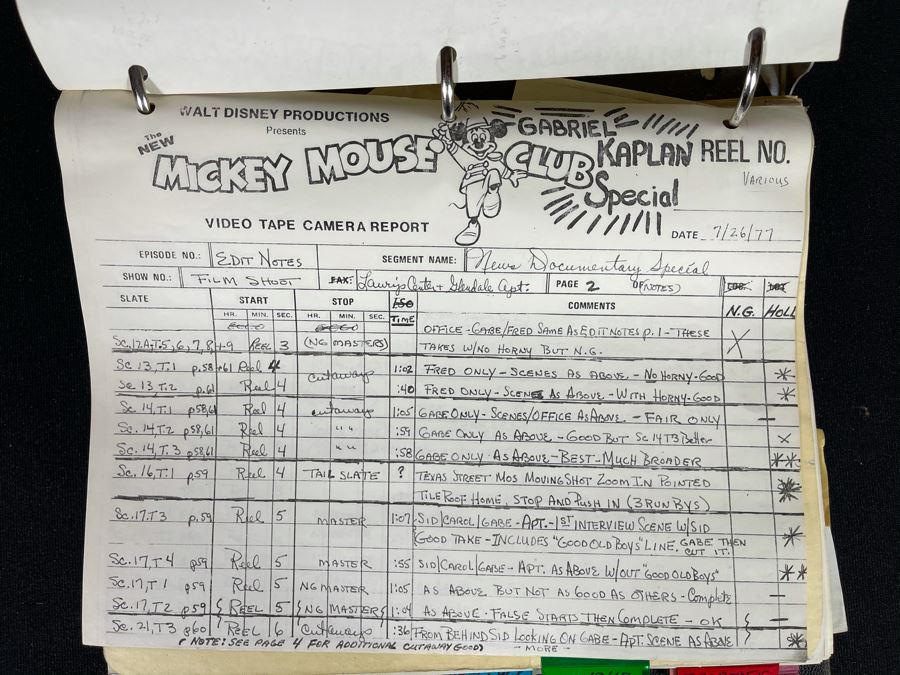 WALT DISNEY PRODUCTIONS
Presents
The NEW MICKEY MOUSE CLUB GABRIEL KAPLAN Special
REEL NO. VARIOUS
VIDEO TAPE CAMERA REPORT
DATE 7/26/77
EPISODE NO.: EDIT NOTES SEGMENT NAME: News Documentary Special
SHOW NO.: FILM SHOOT FAX: Laury's Center + Glendale Apt. PAGE 2 OF (NOTES)
SLATE START STOP ISO TIME COMMENTS N.G. HOLD
HR. MIN. SEC. HR. MIN. SEC.
OFFICE - GABE/FRED SAME AS EDIT NOTES p.1 - THESE
Sc. 12A, T.5, 6, 7, 8, +9 REEL 3 (NG MASTERS) TAKES W/NO HORNY BUT N.G. X
Sc. 13, T.1 p.58+61 Reel 4 cutaways 1:02 FRED ONLY - SCENES AS ABOVE - NO HORNY - GOOD *
Sc 13, T.2 p.61 Reel 4 :40 FRED ONLY - SCENES AS ABOVE - WITH HORNY - GOOD *
Sc. 14, T.1 p58,61 Reel 4 cutaways 1:05 GABE ONLY - SCENES/OFFICE AS ABOVE. - FAIR ONLY —
Sc. 14, T.2 p58,61 Reel 4 " " :59 GABE ONLY AS ABOVE - GOOD BUT Sc 14 T3 Better x
Sc. 14, T.3 p58,61 Reel 4 " " :58 GABE ONLY - AS ABOVE - BEST - MUCH BROADER **
Sc. 16, T.1 p.59 Reel 4 TAIL SLATE ? TEXAS STREET MOS MOVING SHOT ZOOM IN POINTED *
TILE ROOF HOME, STOP AND PUSH IN (3 RUN BYS)
Sc. 17, T3 p.59 Reel 5 MASTER 1:07 SID/CAROL/GABE - APT. - 1ST INTERVIEW SCENE W/SID
GOOD TAKE - INCLUDES "GOOD OLD BOYS" LINE. GABE THEN CUT IT. *
Sc. 17, T4 p59 Reel 5 MASTER :55 SID/CAROL/GABE - APT. AS ABOVE W/OUT "GOOD OLD BOYS" **
Sc. 17, T1 p59 Reel 5 NG MASTER 1:05 AS ABOVE BUT NOT AS GOOD AS OTHERS - Complete —
Sc. 17, T2 p59 { REEL 5 { NG MASTER { 1:04 AS ABOVE - FALSE STARTS THEN COMPLETE - OK } —
Sc. 21, T3 p60 REEL 6 Cutaways :36 FROM BEHIND SID LOOKING ON GABE - APT. SCENE AS ABOVE. *
(NOTE: SEE PAGE 4 FOR ADDITIONAL CUTAWAY GOOD) - MORE -